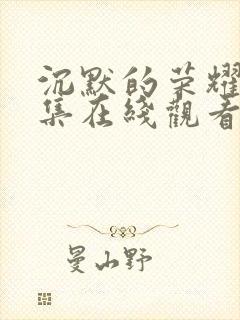 沉默的荣耀
集在线觀看
曼山野